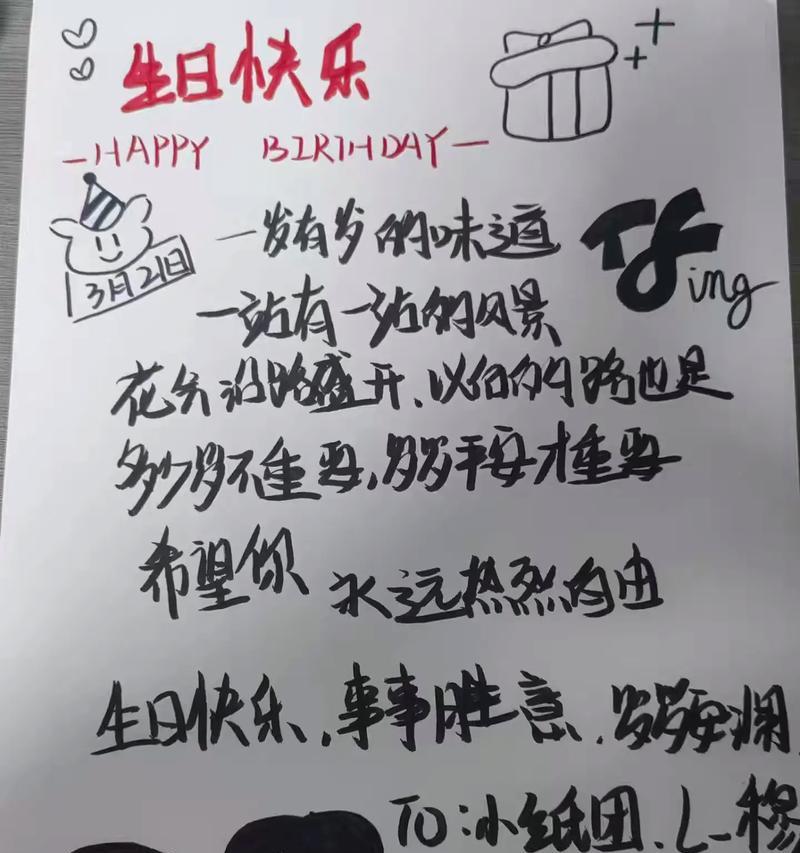 生日快乐
—HAPPY BIRTHDAY—
3月21日
一岁有岁的味道
TFing
一站有一站的风景
花会沿路盛开，以后的路也是
多少岁不重要，岁岁平安才重要
希望你 永远热烈自由
生日快乐，事事胜意，岁岁安澜
TO：小纸团、L_穆